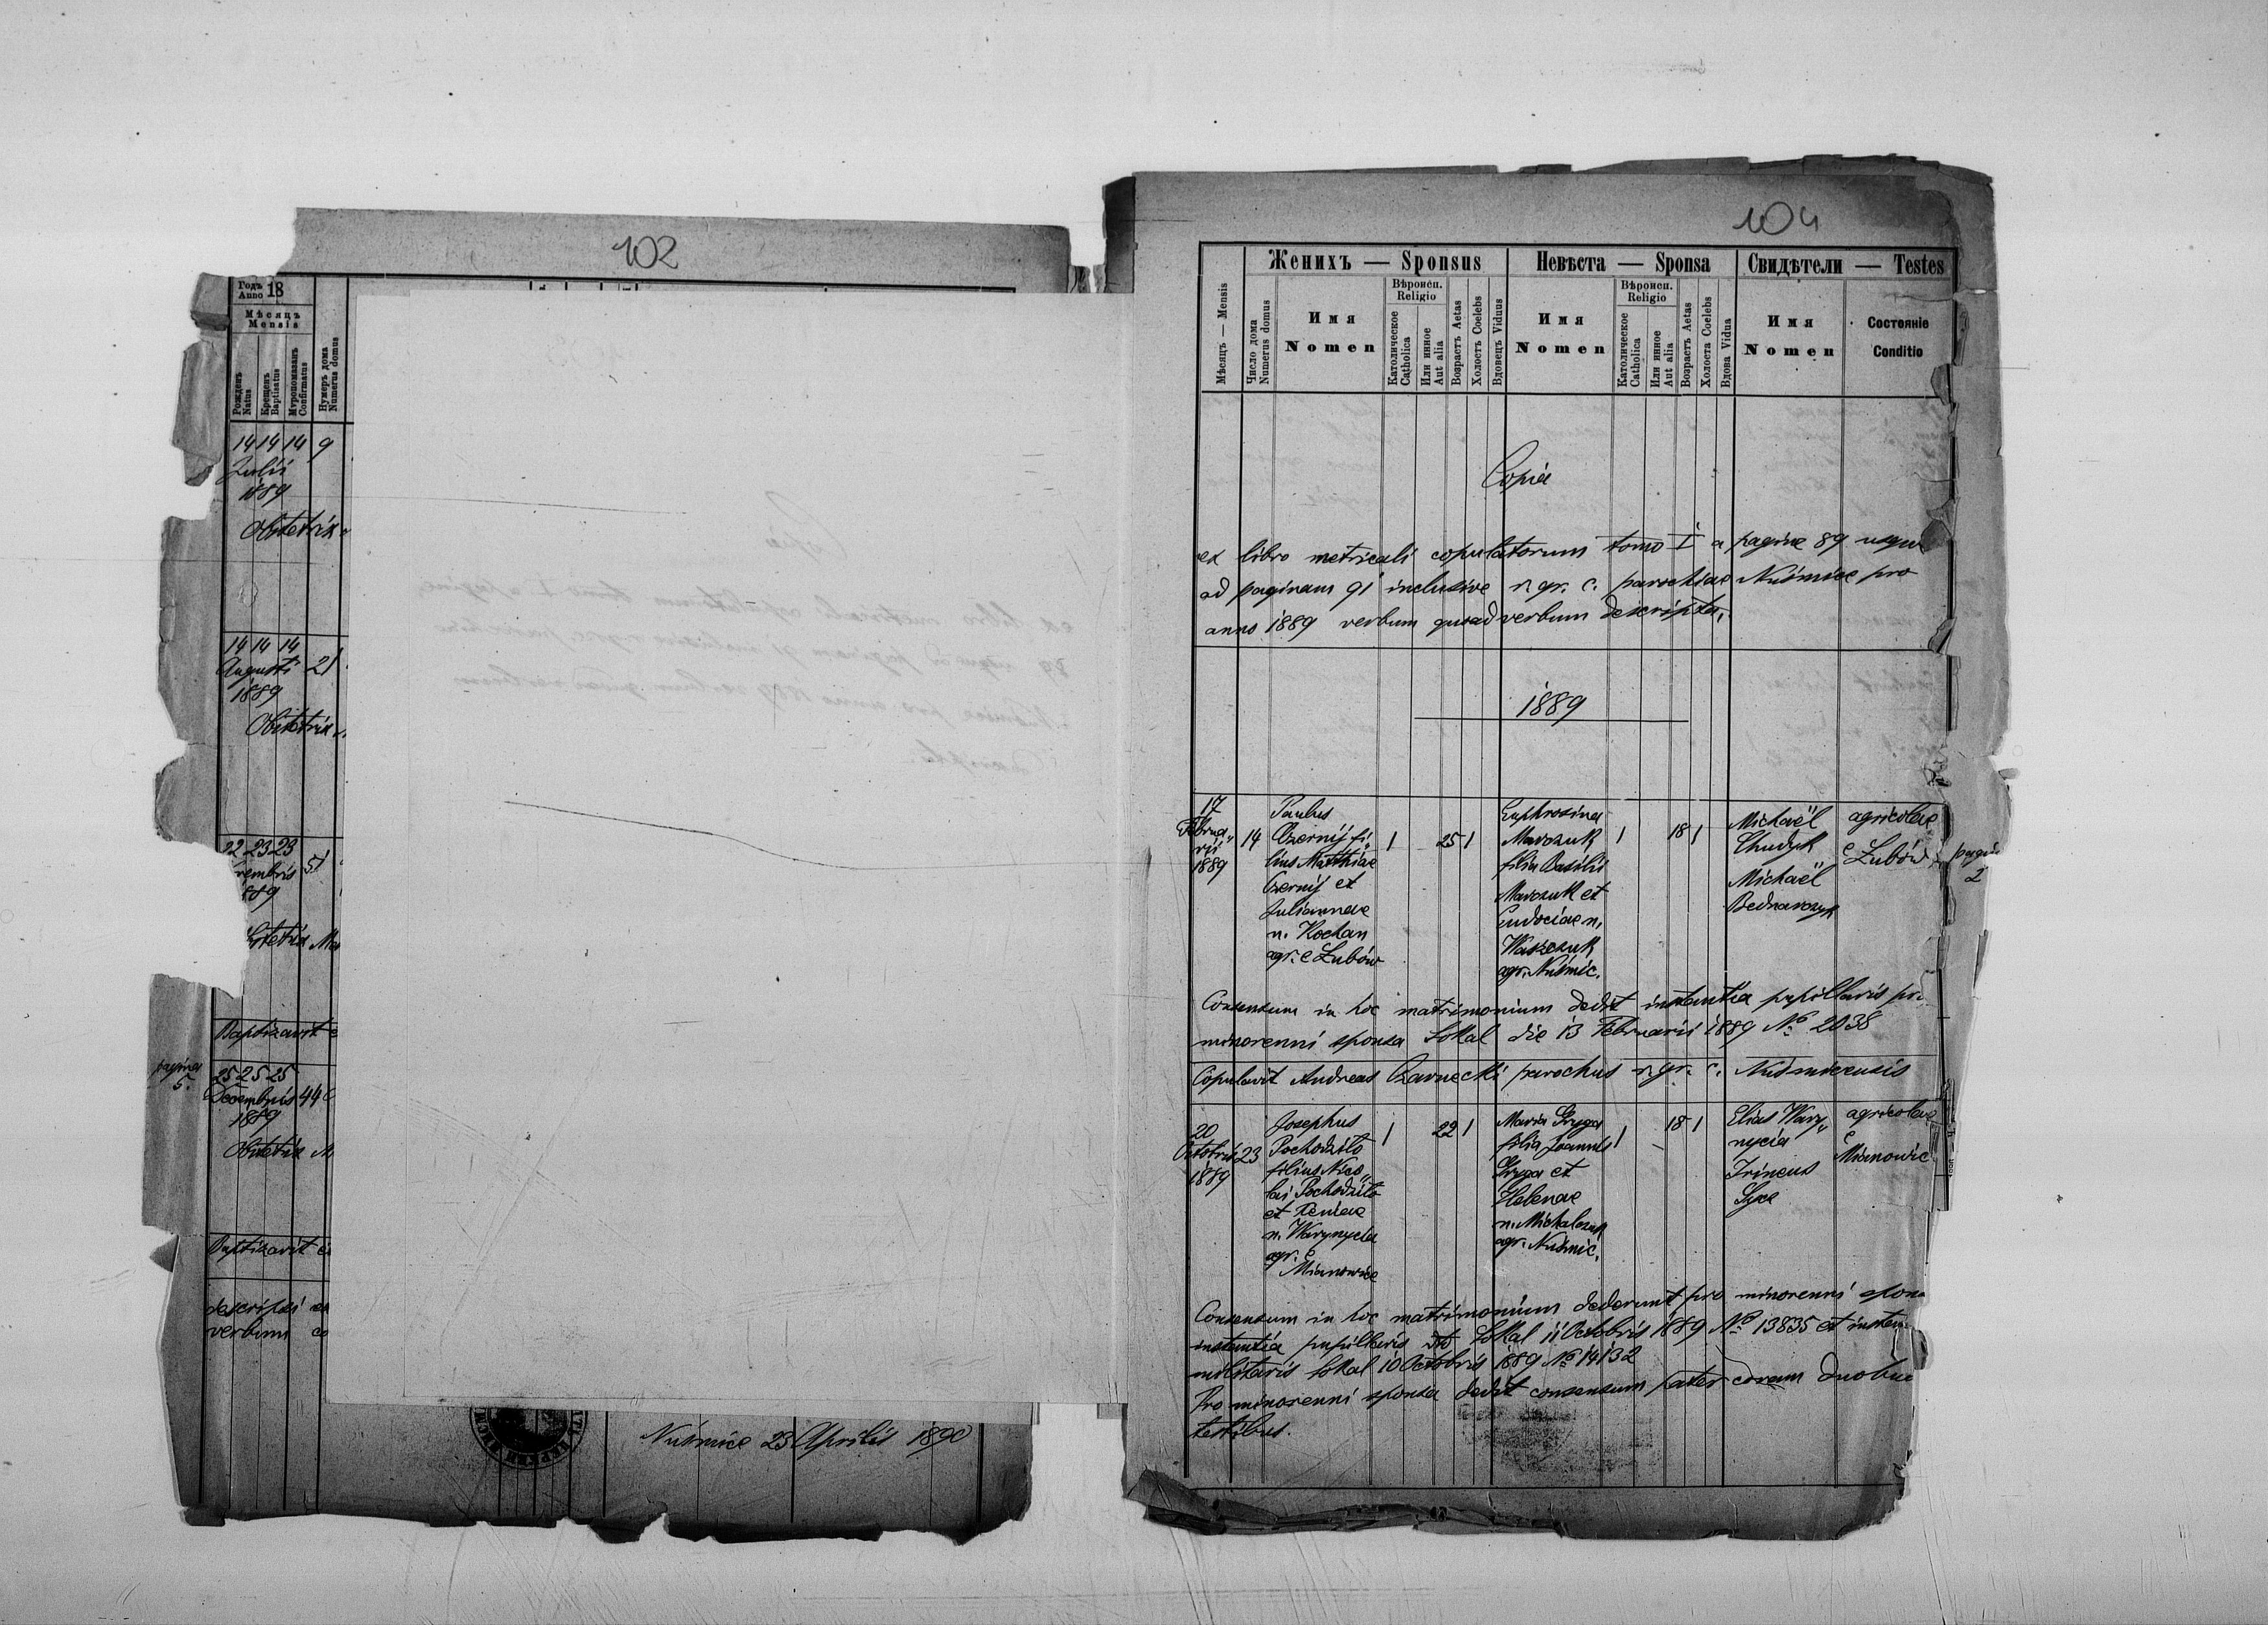 102
Годъ 18
Anno
Мѣсяцъ
Mensis
Рожденъ
Natus
Крещенъ
Baptisatus
Мѵропомазанъ
Confirmatus
Нумеръ дома
Numerus domus
14 14 14 9
Julii
1889
Obstetrix
14 14 14
Augusti 21
1889
Obstetrix
22 23 23
vembris 51
889
stetrix Mar
Baptizavit e
pagina
5.
25 25 25
Decembris 44
1889
Obstetrix M
Baptizavit e
descripsi ex
verbum co
Nuśmice 23 Aprilis 1890
104
Женихъ — Sponsus
Невѣста — Sponsa
Свидѣтели — Testes
Мѣсяцъ — Mensis
Число дома
Numerus domus
Имя
Nomen
Вѣроисп.
Religio
Католическое
Catholica
Или инное
Aut alia
Возрастъ Aetas
Холостъ Coelebs
Вдовецъ Viduus
Имя
Nomen
Вѣроисп.
Religio
Католическое
Catholica
Или инное
Aut alia
Возрастъ Aetas
Холоста Coelebs
Вдова Vidua
Имя
Nomen
Состояніе
Conditio
Copia
ex libro metricali copulatorum tomo I a pagina 89 usque
ad paginam 91 inclusive r. gr. c. parochiae Nuśmice pro
anno 1889 verbum quoad verbum descripta.
1889
17
Februa„
rii
1889
14
Paulus
Czernij fi„
lius Matthiae
Czernij et
Juliannae
n. Kochan
agr. e Lubów
1
25 1
Euphrosina
Marczuk
filia Basilii
Marczuk et
Eudociae n.
Waszczuk
agr. Nuśmic.
1
18 1
Michaël
Chudyk
Michaël
Bednarczyk
agricolae
e Lubów
pagina
2
Consensum in hoc matrimonium dedit instantia pupillaris pro
minorenni sponsa Sokal die 13 Februarii 1889 № 2038
Copulavit Andreas Czarnecki parochus r. gr. c. Nuśmicensis
20
Octobris
1889
23
Josephus
Pochodziło
filius Nico„
lai Pochodziło
et Xeniae
n. Warynycia
agr. e
Mianowice
1
22 1
Maria Gryga
filia Joannis
Gryga et
Helenae
n. Michalczuk
agr. Nuśmic.
1
18 1
Elias Wary„
nycia
Irineus
Syca
agricolae
e
Mianowic
Consensum in hoc matrimonium dederunt pro minorenni spon
instantia pupillaris Sokal 11 Octobris 1889 № 13835 et instan
militaris Sokal 10 Octobris 1889 № 14132
Pro minorenni sponsa dedit consensum pater coram duobus
testibus.